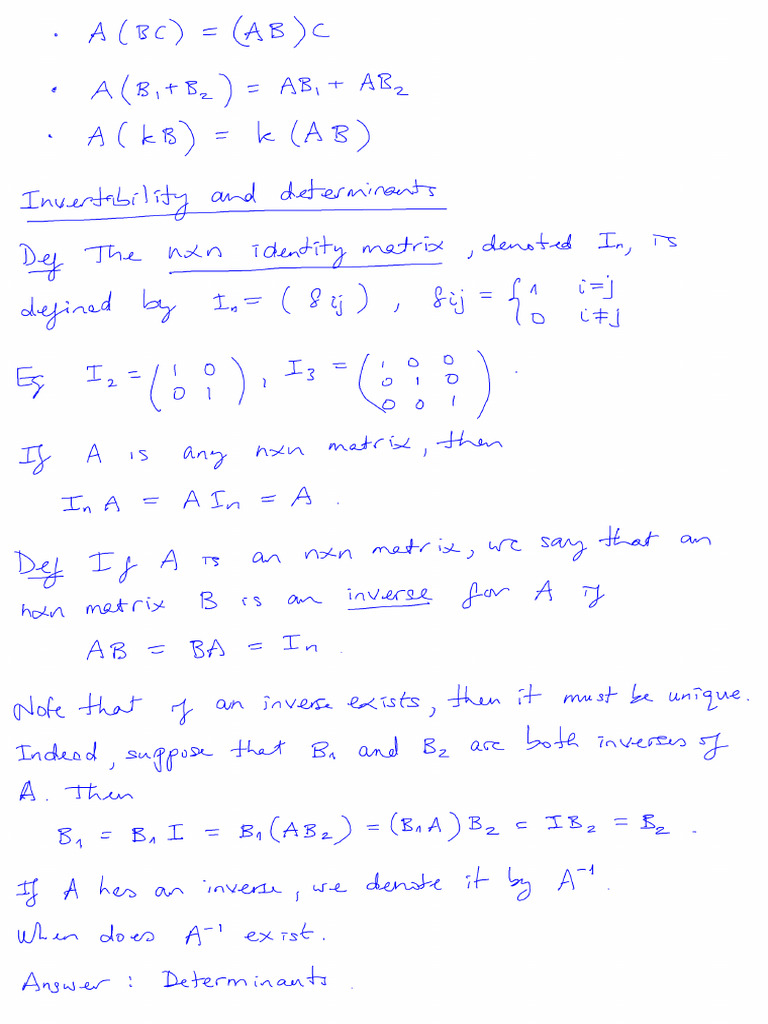 · A(BC) = (AB)C
· A(B₁+B₂) = AB₁ + AB₂
· A(kB) = k(AB)
Invertability and determinants
Def The nxn identity matrix, denoted Iₙ, is
defined by Iₙ = (δij), δij = { 1 i=j
0 i≠j
Eg I₂ = ( 1 0 ), I₃ = ( 1 0 0 ) .
0 1 0 1 0
0 0 1
If A is any nxn matrix, then
Iₙ A = A Iₙ = A .
Def If A is an nxn matrix, we say that an
nxn matrix B is an inverse for A if
AB = BA = Iₙ .
Note that if an inverse exists, then it must be unique.
Indeed, suppose that B₁ and B₂ are both inverses of
A. Then
B₁ = B₁ I = B₁(AB₂) = (B₁A)B₂ = IB₂ = B₂ .
If A has an inverse, we denote it by A⁻¹.
When does A⁻¹ exist.
Answer : Determinants .